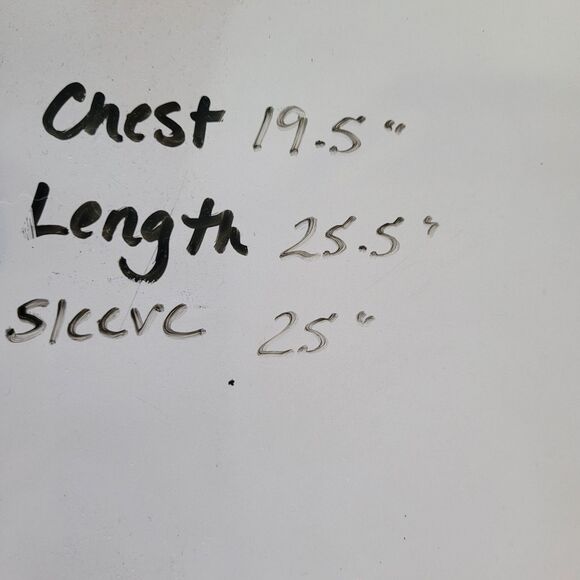 Chest 19.5"
Length 25.5"
Sleeve 25"